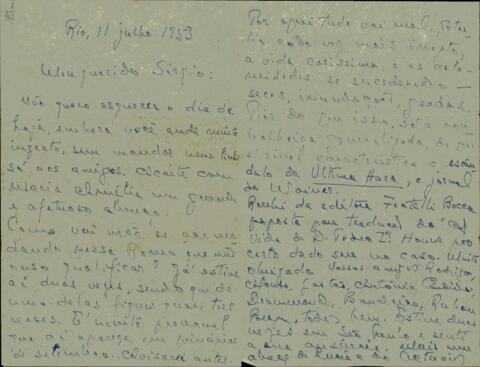 Rio, 11 julho 1953
Meu querido Sérgio:
Não quero esquecer o dia de
hoje, embora você ande muito
ingrato, sem mandar uma linha
só aos amigos. Aceite com
Maria Amélia um grande
e afetuoso abraço.
Como vai você se
dando nessa Roma que não
ouso qualificar? Já estive
aí duas vezes, sendo que de
uma delas fiquei quase três
meses. É muito provável
que aí apareça em princípios
de setembro. Avisarei antes.
Por aqui tudo vai mal.
cada vez mais inepto,
a vida caríssima, e as cala-
midades se sucedendo —
secas, inundações, geadas.
Pior do que isso, só a
generalizada, de que
é sinal característico o escân-
dalo da Ultima Hora, o jornal
do Wainer.
Recebi da editora Fratelli Bocca
proposta para traduzir a
Vida de D. Pedro I. Houve por
certo dedo seu no caso. Muito
obrigado. Nossos amigos Rodrigo,
Afonso, Gastão, Antônio
Drummond, Bandeira, Rubem
Braga, todos bem. Estive duas
vezes em São Paulo e senti
a sua ausência. Mais um
abraço de Lucia e do Octavio